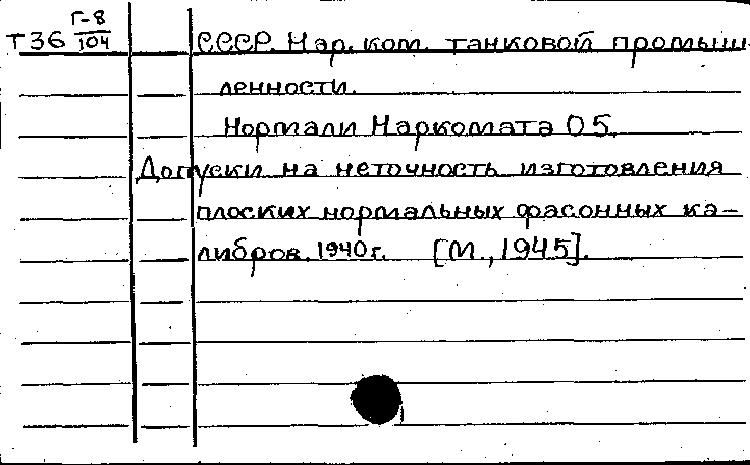 Г-8
Т36 104 СССР. Нар. ком. танковой промыш-
ленности.
Нормали Наркомата 05.
Допуски на неточность изготовления
плоских нормальных фасонных ка-
либров. 1940г. [М., 1945].